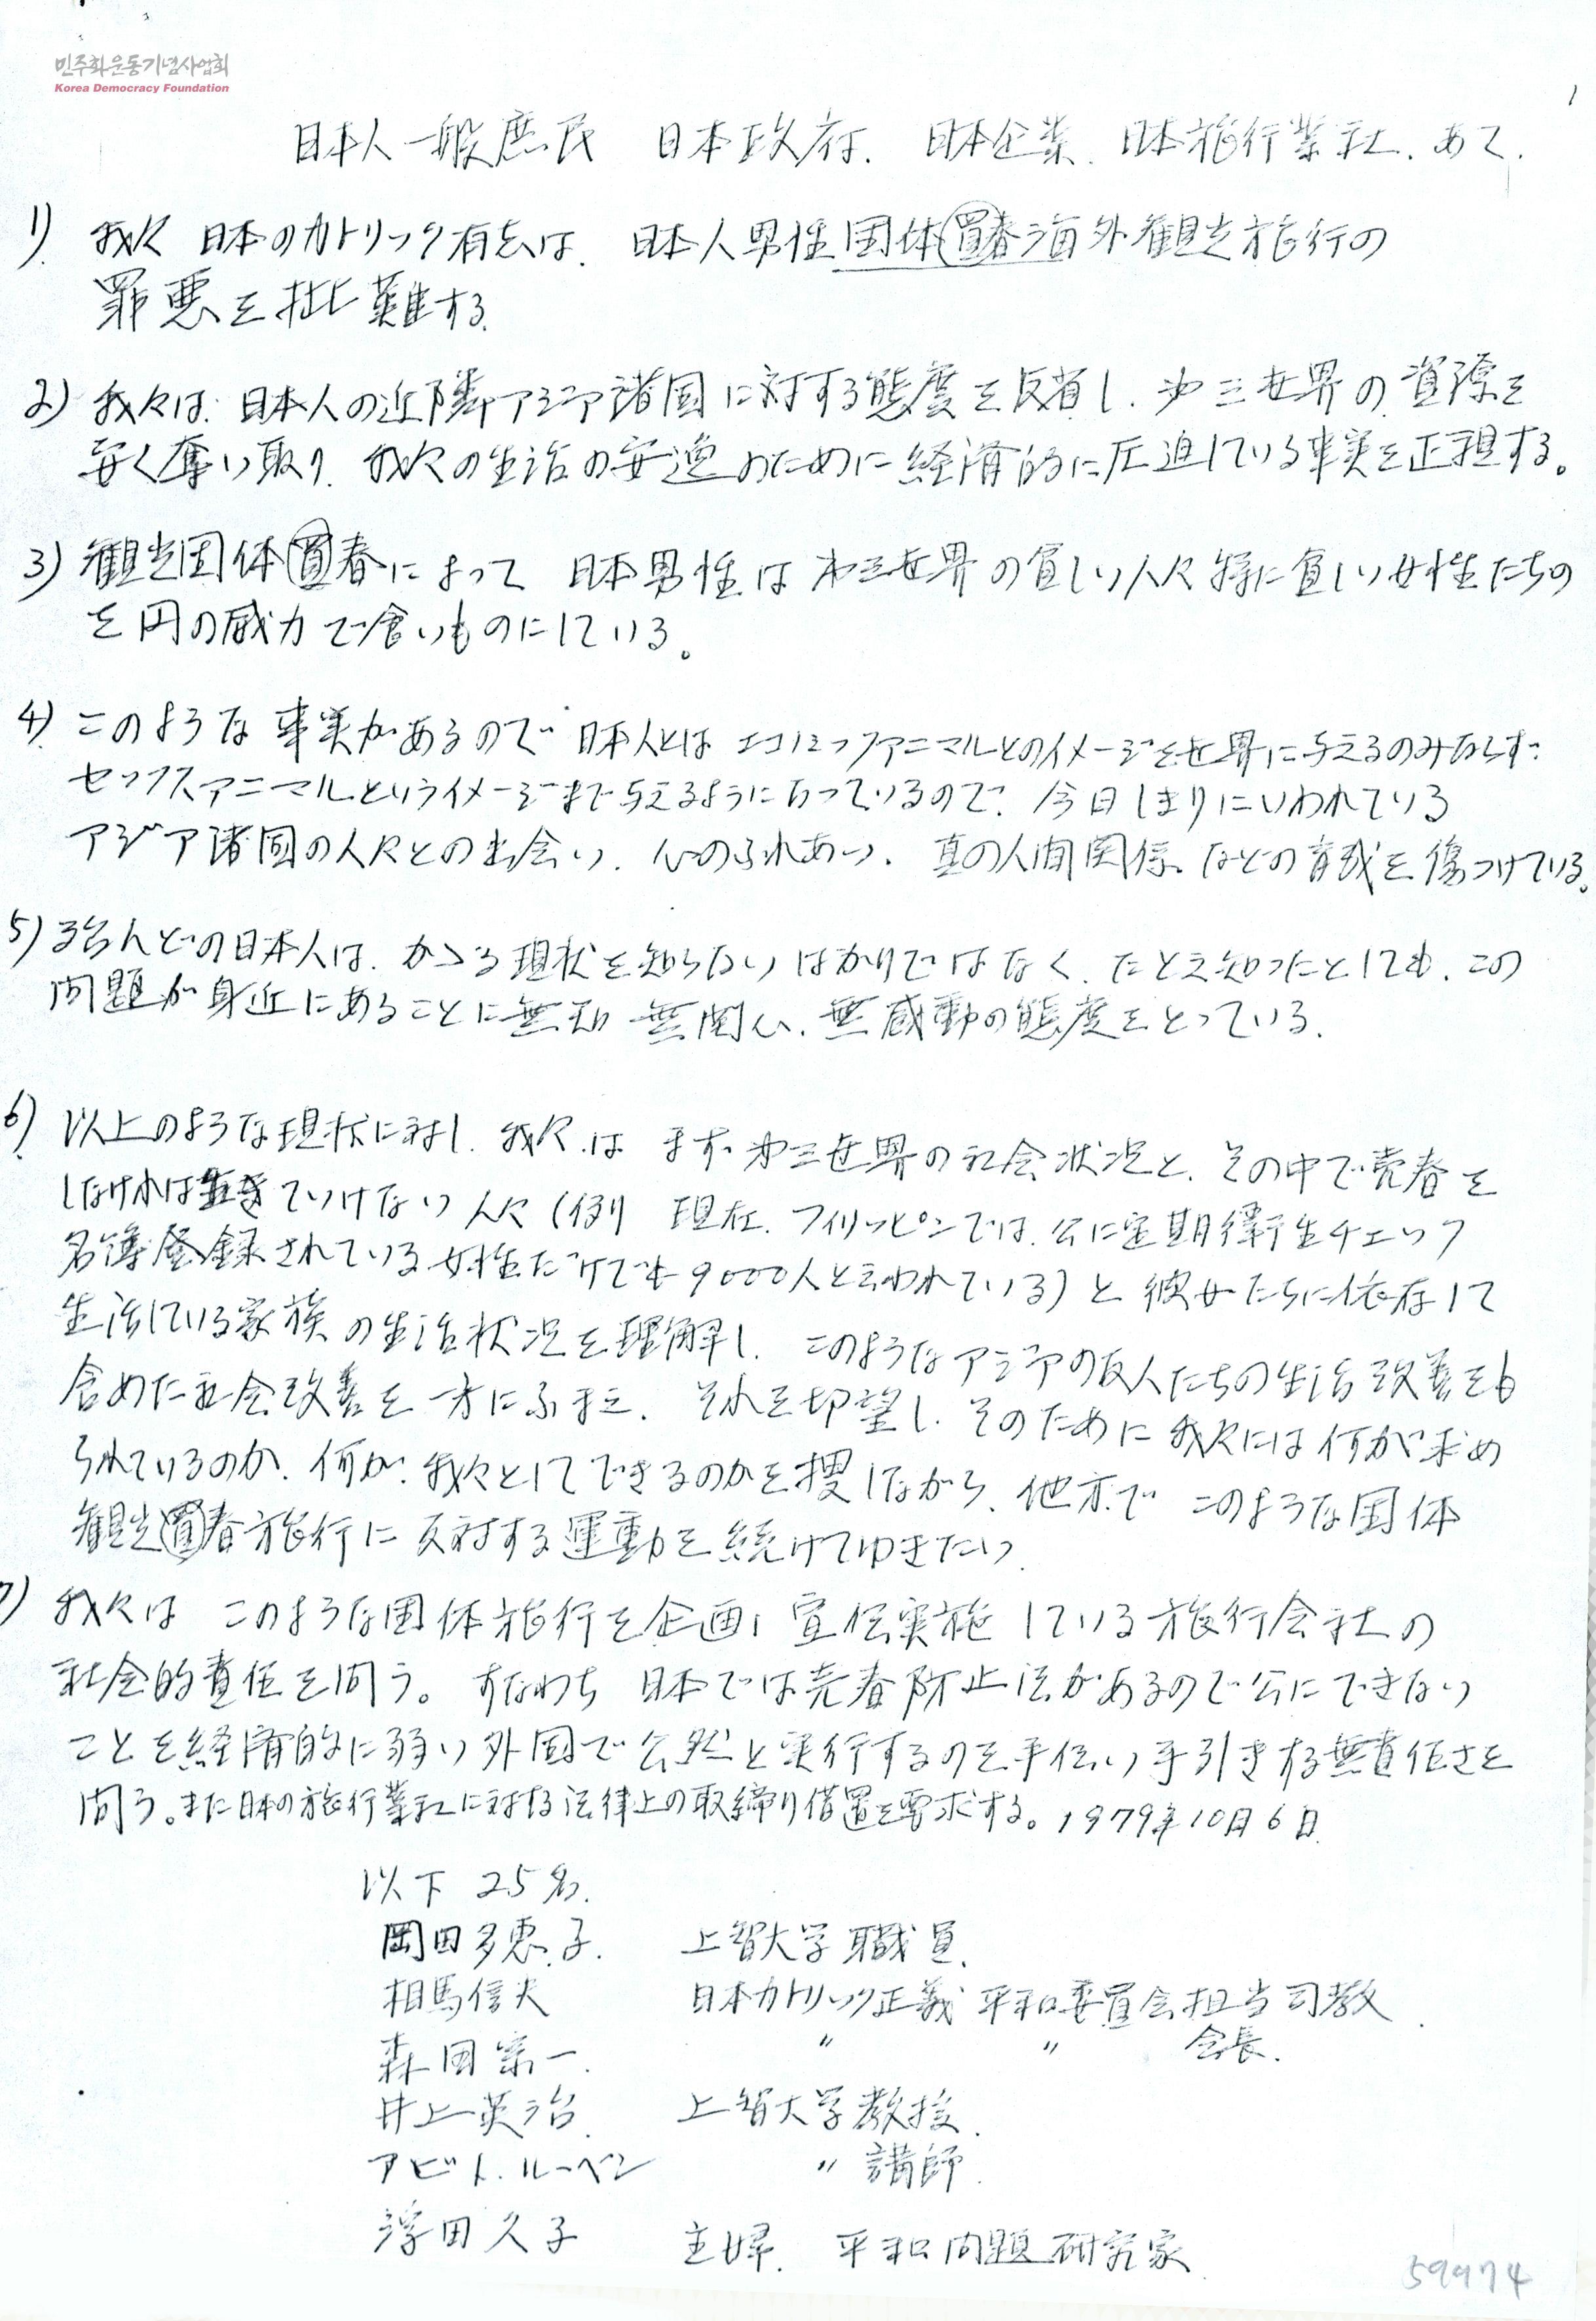 민주화운동기념사업회
Korea Democracy Foundation
1
日本人一般庶民 日本政府. 日本企業. 日本旅行業社. あて.
1) 我々 日本のカトリック有志は. 日本人男性団体買春海外観光旅行の
罪悪を批難する.
2) 我々は. 日本人の近隣アジア諸国に対する態度を反省し. 第三世界の資源を
安く奪い取り. 我々の生活の安逸のために経済的に圧迫している事実を正視する。
3) 観光団体買春によって 日本男性は第三世界の貧しい人々特に貧しい女性たちの
を円の威力で食いものにしている。
4) このような事実があるので 日本人とはエコノミックアニマルとのイメージを世界に与えるのみならず
セックスアニマルというイメージまで与えるようになっているので. 今日しきりにいわれている
アジア諸国の人々との出会い. 心のふれあい. 真の人間関係などの育成を傷つけている。
5) 殆んどの日本人は. かゝる現状を知らないばかりではなく. たとえ知ったとしても. この
問題が身近にあることに無知 無関心. 無感動の態度をとっている.
6) 以上のような現状に対し. 我々は まず第三世界の社会状況と. その中で売春を
しなければ生きていけない人々(例 現在. フィリッピンでは. 公に定期衛生チェック
名簿登録されている女性だけでも9000人と云われている)と 彼女たちに依存して
生活している家族の生活状況を理解し. このようなアジアの友人たちの生活改善をも
含めた社会改善を一方にふまえ. それを切望し. そのために我々には何が求め
られているのか. 何が我々としてできるのかを捜しながら. 他方で このような団体
観光買春旅行に反対する運動を続けてゆきたい.
7) 我々は このような団体旅行を企画し宣伝実施している旅行会社の
社会的責任を問う。すなわち 日本では売春防止法があるので公にできない
ことを経済的に弱い外国で公然と実行するのを手伝い手引きする無責任さを
問う。また日本の旅行業社に対する法律上の取締り措置を要求する。1979年10月6日.
以下 25名.
岡田多恵子. 上智大学職員.
相馬信夫 日本カトリック正義平和委員会担当司教.
森田宗一. 〃 〃 会長.
井上英治. 上智大学教授.
アビト.ルーベン 〃 講師.
浮田久子 主婦. 平和問題研究家.
59974